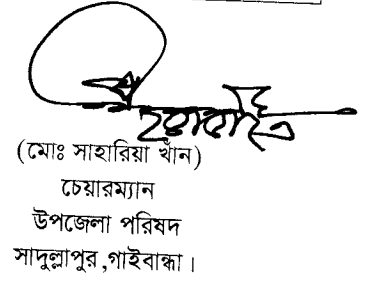 (মোঃ সাহারিয়া খাঁন)
চেয়ারম্যান
উপজেলা পরিষদ
সাদুল্লাপুর,গাইবান্ধা।